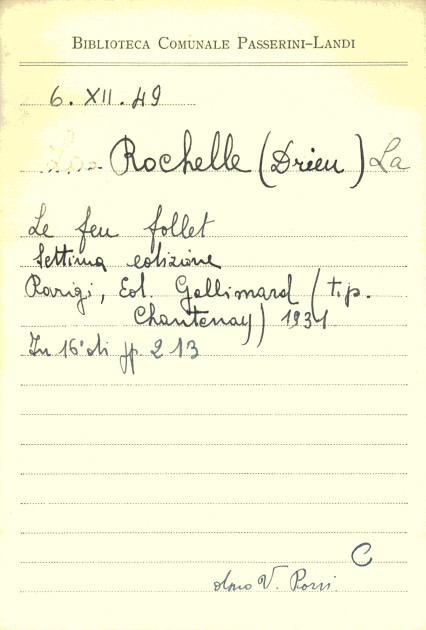 BIBLIOTECA COMUNALE PASSERINI-LANDI
6. XII. 49
Rochelle (Drieu) La
Le feu follet
Settima edizione
Parigi, Ed. Gallimard (tip.
Chantenay) 1931
In 16° di pp. 213
C
dono V.